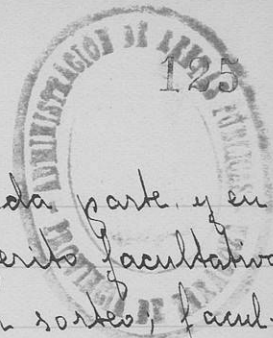 ADMINISTRACIÓN DE
125
da parte y en
erito facultativo
n sorteo; facul-